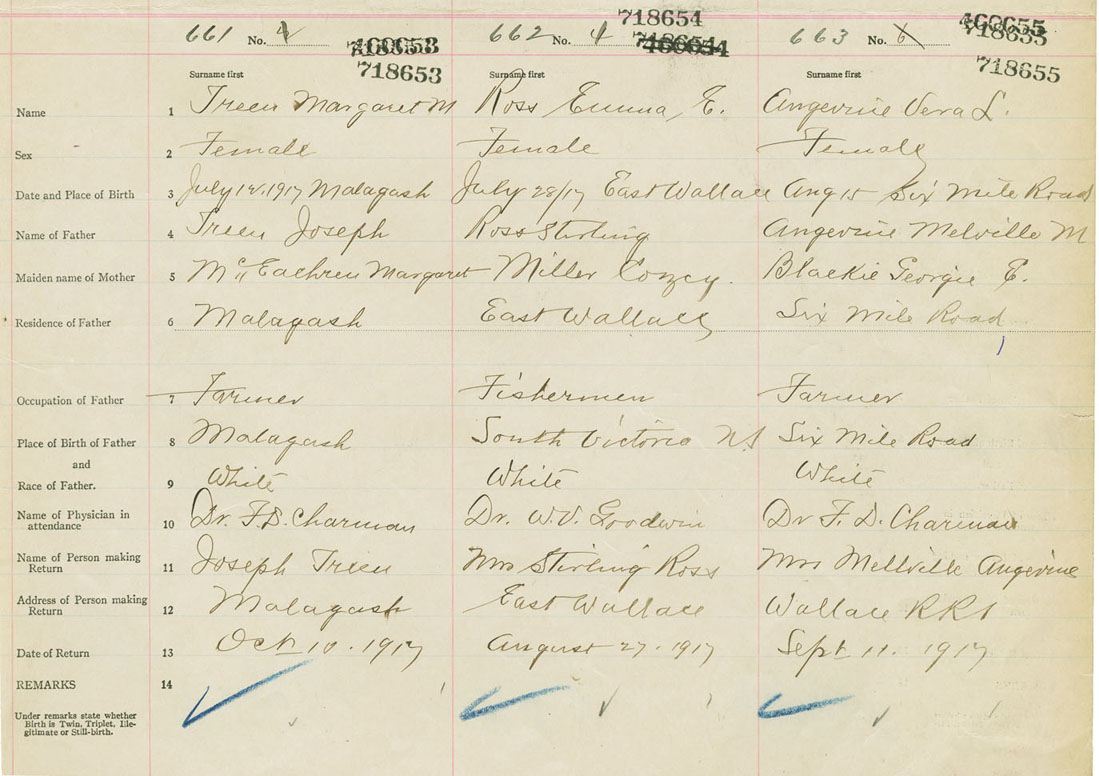 718654
661 No. 4 718653 662 No. 4 663 No. 6 718655
718653 718655
Surname first Surname first Surname first
Name 1 Treen Margaret M Ross Emma E. Angevine Vera L.
Sex 2 Female Female Female
Date and Place of Birth 3 July 1917 Malagash July 28/17 East Wallace Aug 15 Six Mile Road
Name of Father 4 Treen Joseph Ross Stirling Angevine Melville M
Maiden name of Mother 5 McEachren Margaret Miller Blackie Georgie E.
Residence of Father 6 Malagash East Wallace Six Mile Road
Occupation of Father 7 Farmer Fishermen Farmer
Place of Birth of Father 8 Malagash South Victoria NS Six Mile Road
and
Race of Father. 9 White White White
Name of Physician in
attendance 10 Dr. F. D. Charman Dr. W.V. Goodwin Dr F. D. Charman
Name of Person making
Return 11 Joseph Treen Mrs Stirling Ross Mrs Mellville Angevine
Address of Person making
Return 12 Malagash East Wallace Wallace RR1
Date of Return 13 Oct 10. 1917 August 27. 1917 Sept 11. 1917
REMARKS 14
Under remarks state whether
Birth is Twin, Triplet, Ille-
gitimate or Still-birth.